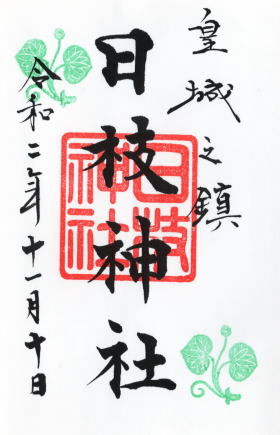 皇城之鎮
日枝神社
日枝神社
令和二年十一月十日